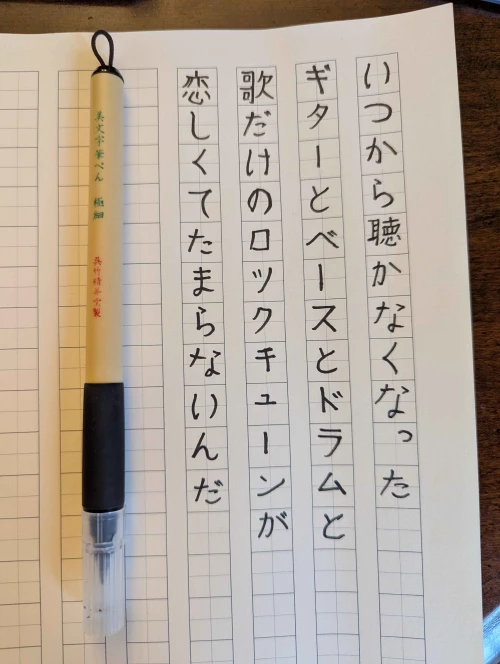 いつから聴かなくなった
ギターとベースとドラムと
歌だけのロックチューンが
恋しくてたまらないんだ
美文字筆ぺん 極細
呉竹精昇堂製